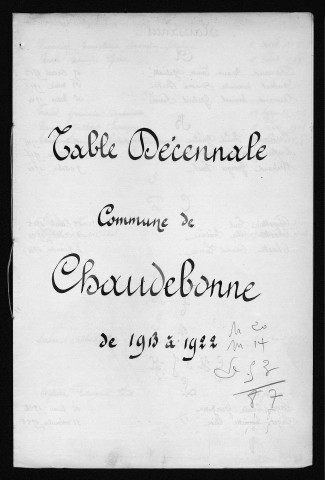 Table Décennale
Commune de
Chaudebonne
de 1913 à 1922
N 20
M 14
D 53
87